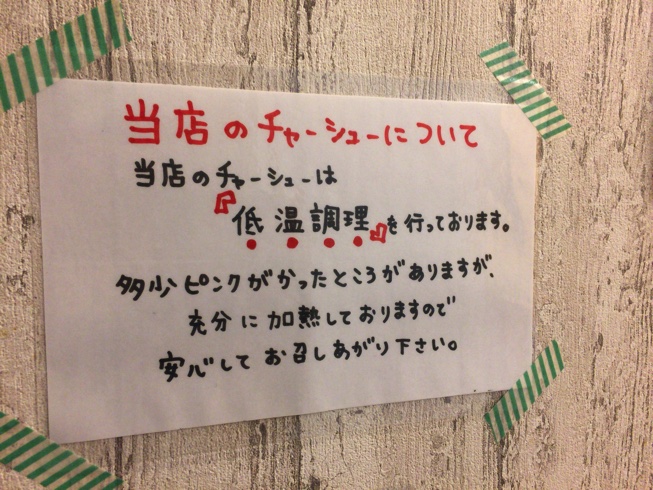 当店のチャーシューについて
当店のチャーシューは
『低温調理』を行っております。
多少ピンクがかったところがありますが、
充分に加熱しておりますので
安心してお召しあがり下さい。